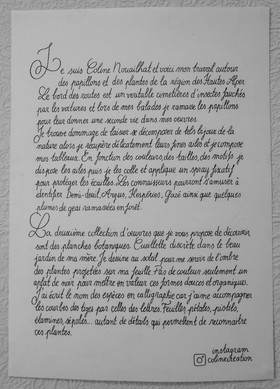 Je suis Coline Norailhat et voici mon travail autour
des papillons et des plantes de la région des Hautes Alpes.
Le bord des routes est un veritable cimetières d'insectes fauchés
par les voitures et lors de mes balades je ramasse les papillons
pour leur donner une seconde vie dans mes œuvres.
Je trouve dommage de laisser se décomposer de tels bijoux de la
nature alors je récupère délicatement leurs fines ailes et je compose
mes tableaux. En fonction des couleurs, des tailles, des motifs je
dispose les ailes puis je les colle et applique un spray fixatif
pour protéger les écailles. Les connaisseurs pourront s'amuser à
identifier Demi-deuil, Argus, Hespéries, Gazé ainsi que quelques
plumes de geai ramassées en forêt.
La deuxième collection d'œuvres que je vous propose de découvrir
sont des planches botaniques. Cueillette discrète dans le beau
jardin de ma mère. Je dessine au soleil pour me servir de l'ombre
des plantes projetées sur ma feuille. Pas de couleur seulement un
enfant de noir pour mettre en valeur ces formes douces et organiques.
J'ai écrit le nom des espèces en calligraphie car j'aime accompagner
les courbes des tiges par celles des lettres. Feuilles, pétales, pistils,
étamines, sépales... autant de détails qui permettent de reconnaître
ces plantes.
instagram
colinecreation